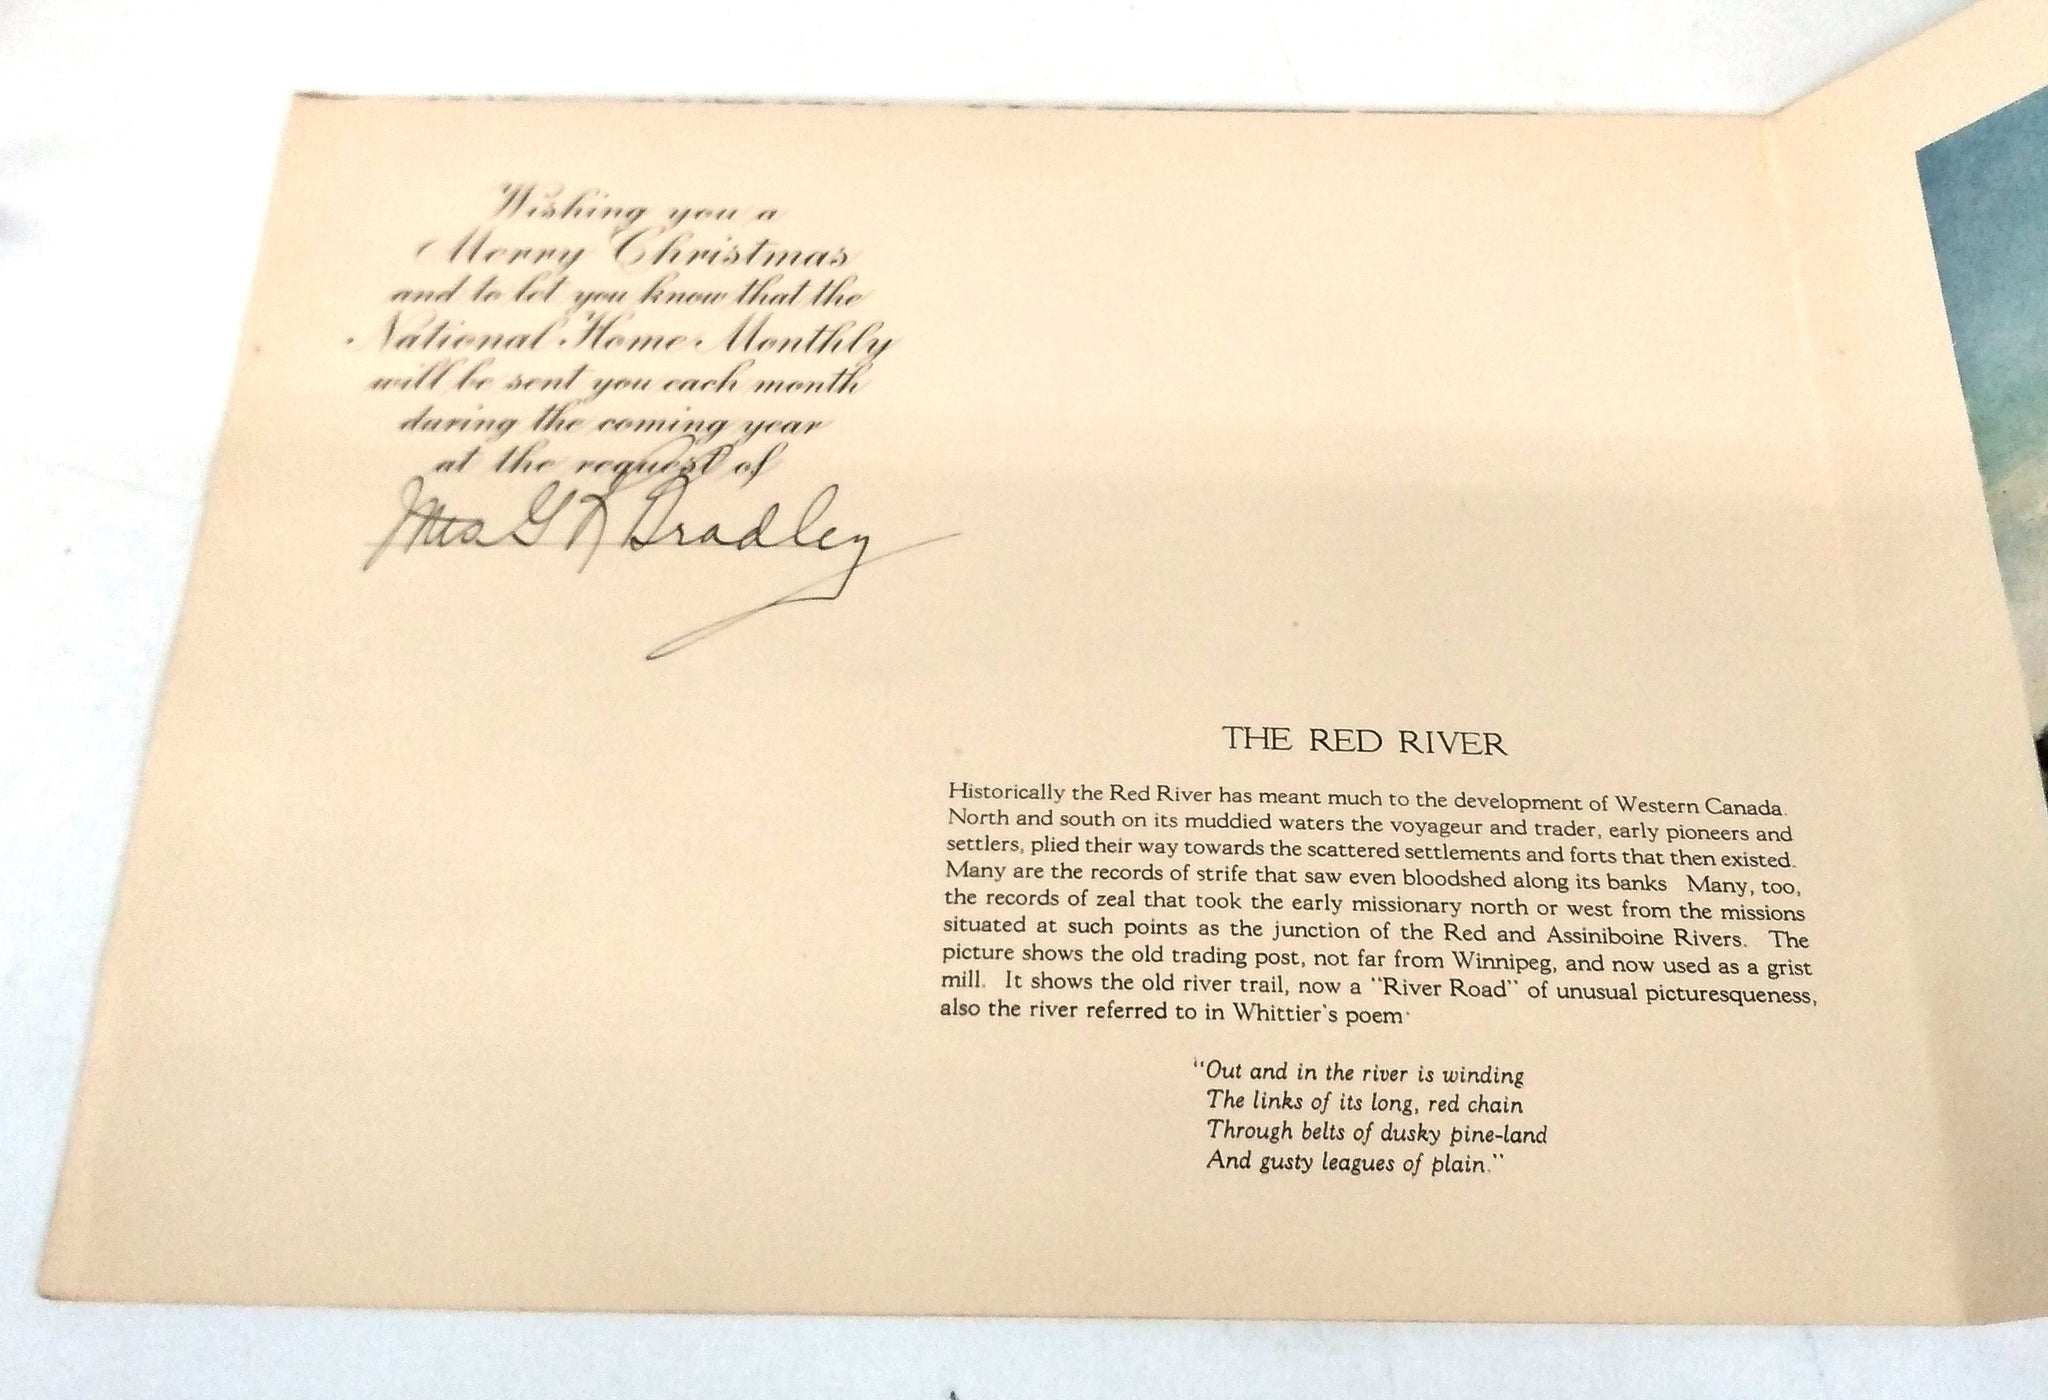 Wishing you a
Merry Christmas
and to let you know that the
National Home Monthly
will be sent you each month
during the coming year
at the request of
Mrs G R Bradley
THE RED RIVER
Historically the Red River has meant much to the development of Western Canada.
North and south on its muddied waters the voyageur and trader, early pioneers and
settlers, plied their way towards the scattered settlements and forts that then existed.
Many are the records of strife that saw even bloodshed along its banks Many, too,
the records of zeal that took the early missionary north or west from the missions
situated at such points as the junction of the Red and Assiniboine Rivers. The
picture shows the old trading post, not far from Winnipeg, and now used as a grist
mill. It shows the old river trail, now a "River Road" of unusual picturesqueness,
also the river referred to in Whittier's poem·
"Out and in the river is winding
The links of its long, red chain
Through belts of dusky pine-land
And gusty leagues of plain."